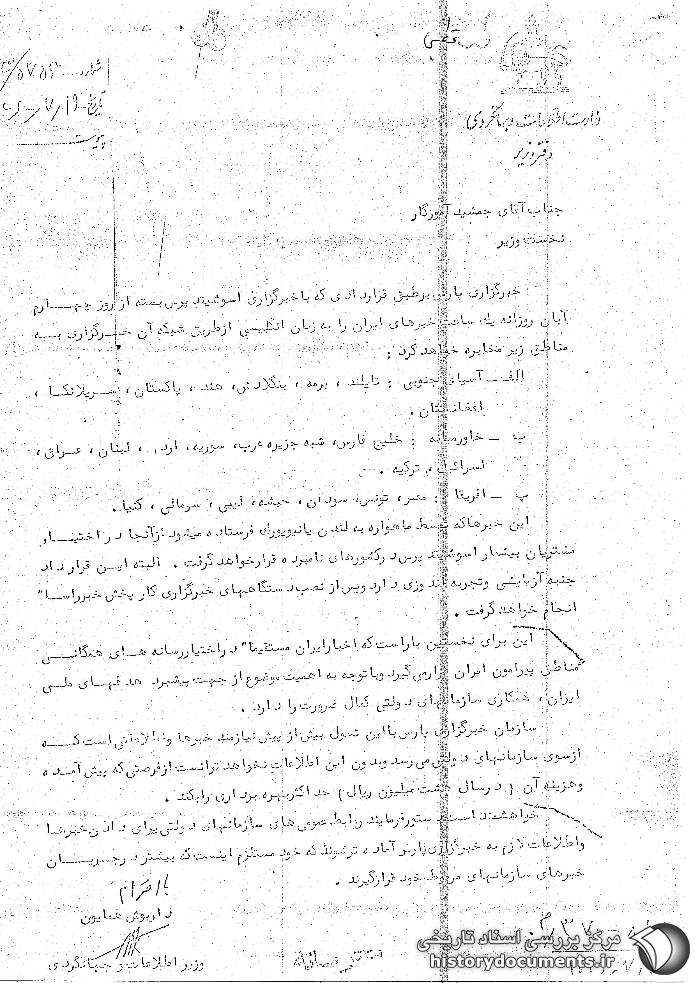 شماره
تاریخ
پیوست
وزارت اطلاعات و جهانگردی
دفتر وزیر
جناب آقای جمشید آموزگار
نخست وزیر
خبرگزاری پارس برطبق قراردادی که با خبرگزاری اسوشیتد پرس بسته از روز چهارم
آبان روزانه یک ساعت خبرهای ایران را به زبان انگلیسی ازطریق شبکه آن خبرگزاری به
مناطق زیر مخابره خواهد کرد :
الف ـ آسیای جنوبی : تایلند ، برمه ، بنگلادش، هند ، پاکستان ، سریلانکا ،
افغانستان .
ب ـ خاورمیانه : خلیج فارس، شبه جزیره عرب، سوریه، اردن ، لبنان ، عراق ،
اسرائیل ، ترکیه .
پ ـ افریقا : مصر ، تونس، سودان ، حبشه ، لیبی ، سومالی ، کنیا .
این خبرها که توسط ماهواره به لندن یا نیویورک فرستاده میشود ازآنجا در اختیار
مشتریان بیشمار اسوشیتد پرس در کشورهای نامبرده قرار خواهد گرفت . البته این قرارداد
جنبه آزمایشی و تجربه اندوزی دارد و پس از نصب دستگاههای خبرگزاری کار پخش خبر راسا"
انجام خواهد گرفت .
این برای نخستین بار است که اخبار ایران مستقیما" در اختیار رسانه های همگانی
مناطق پیرامون ایران قرار می گیرد و با توجه به اهمیت موضوع از جهت پیشبرد هدفهای ملی
ایران ، همکاری سازمانهای دولتی کمال ضرورت را دارد .
سازمان خبرگزاری پارس با این تحول بیش از پیش نیازمند خبرها و اطلاعاتی است که
ازسوی سازمانهای دولتی می رسد و بدون این اطلاعات نخواهد توانست از فرصتی که پیش آمده
و هزینه آن ( در سال هشت میلیون ریال ) حداکثر بهره برداری را بکند .
خواهشمند است دستور فرمایند روابط عمومی های سازمانهای دولتی برای دادن خبرها
و اطلاعات لازم به خبرگزاری پارس آماده تر شوند که خود مستلزم اینست که بیشتر در جریان
خبرهای سازمانهای مربوط خود قرار گیرند .
با احترام
داریوش همایون
وزیر اطلاعات و جهانگردی
مرکز بررسی اسناد تاریخی
historydocuments.ir